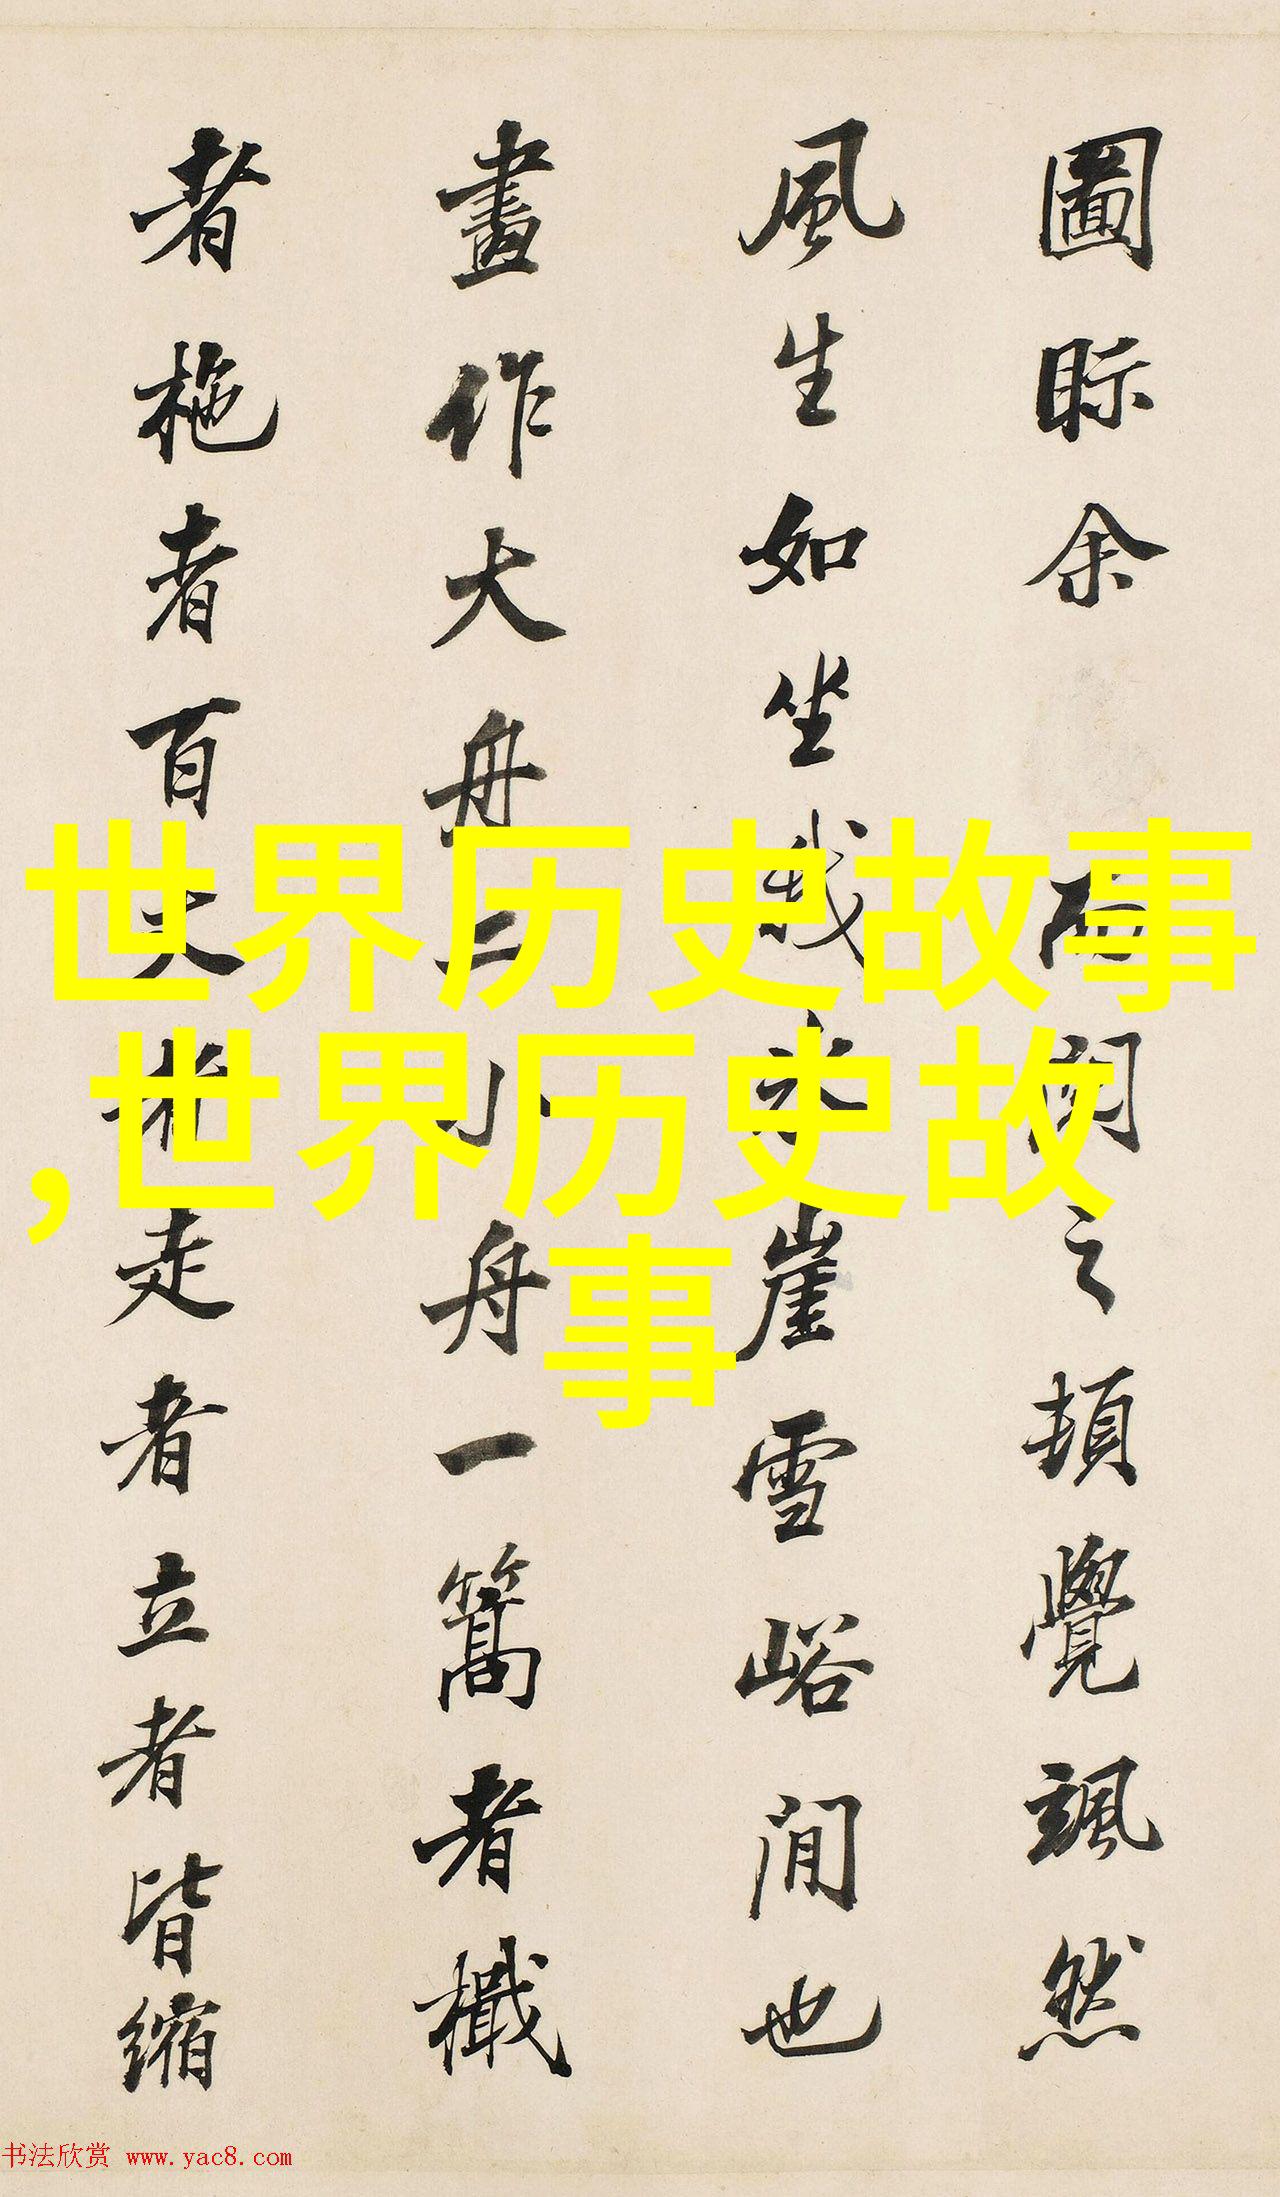 圖眎余之頓覺颯然
風生如坐我崖雪峪間也
畫作大舟二小舟一篙者檝
者柂者百丈走者立者皆縮
世界历史故事
,世界历史故
事
书法欣赏 www.yac8.com